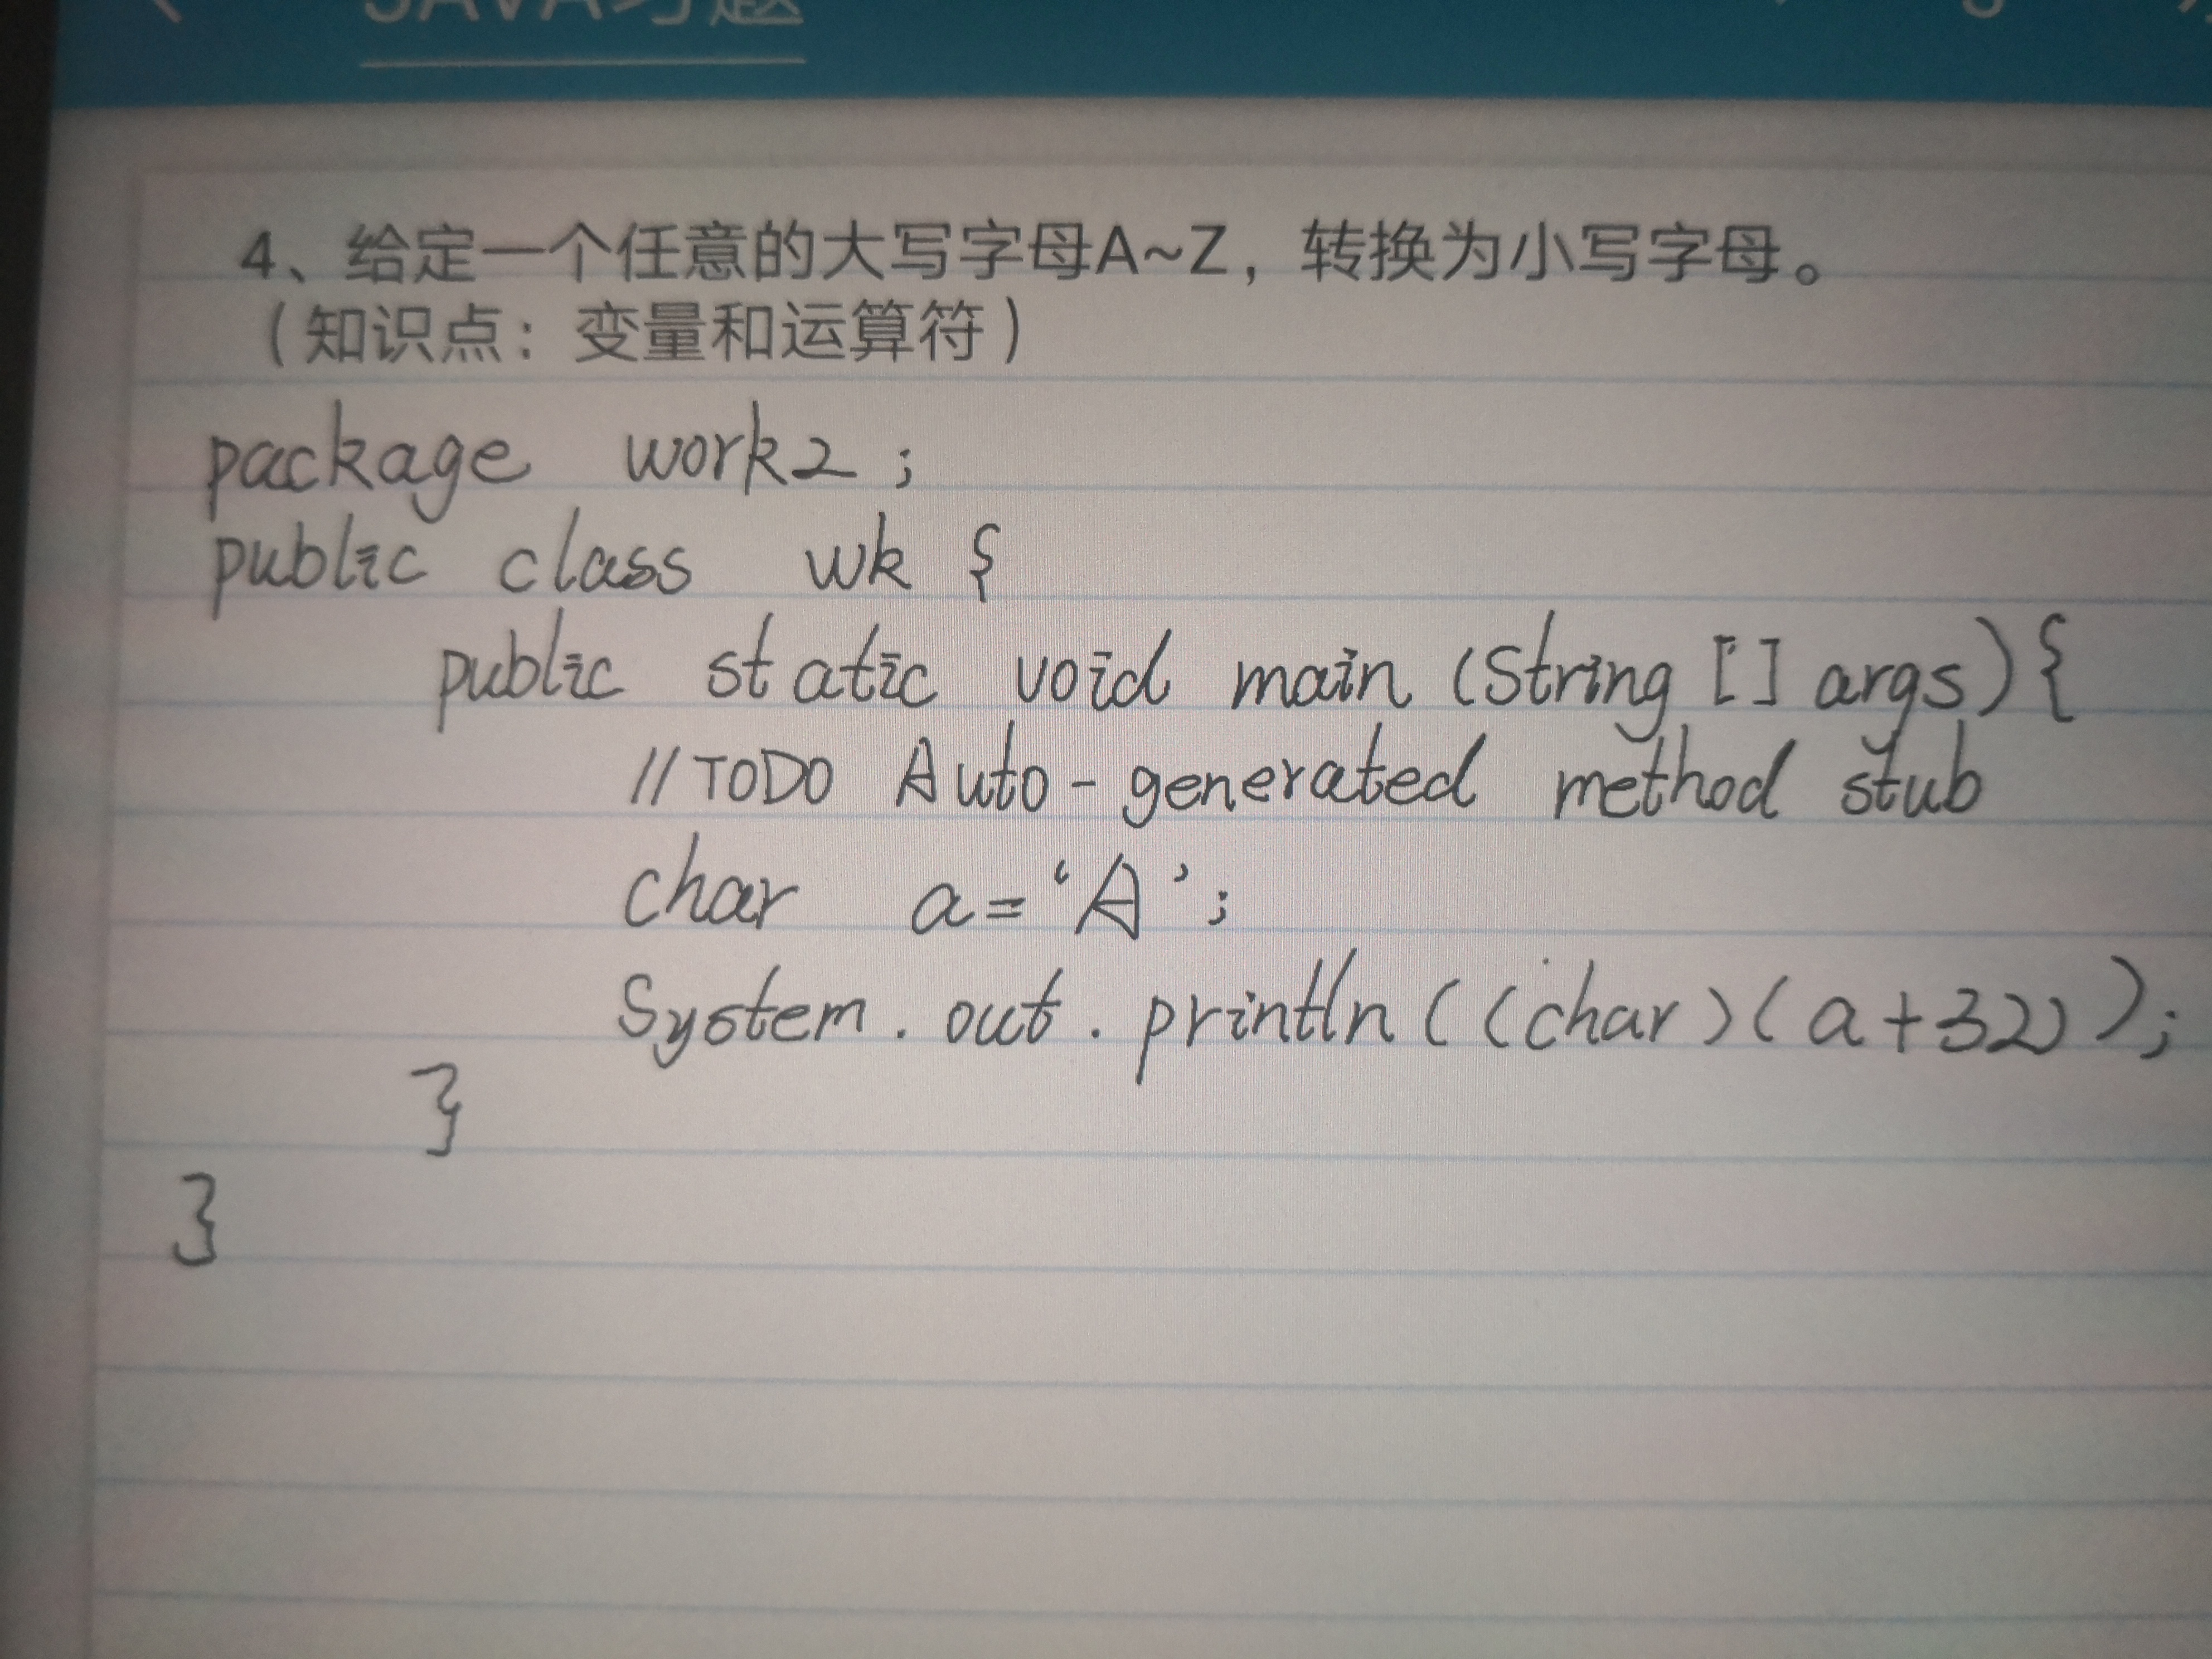 JAVA习题
4、给定一个任意的大写字母A~Z，转换为小写字母。
（知识点：变量和运算符）
package work2;
public class wk {
public static void main (String [] args){
//TODO Auto-generated method stub
char a='A';
System.out.println((char)(a+32));
}
}